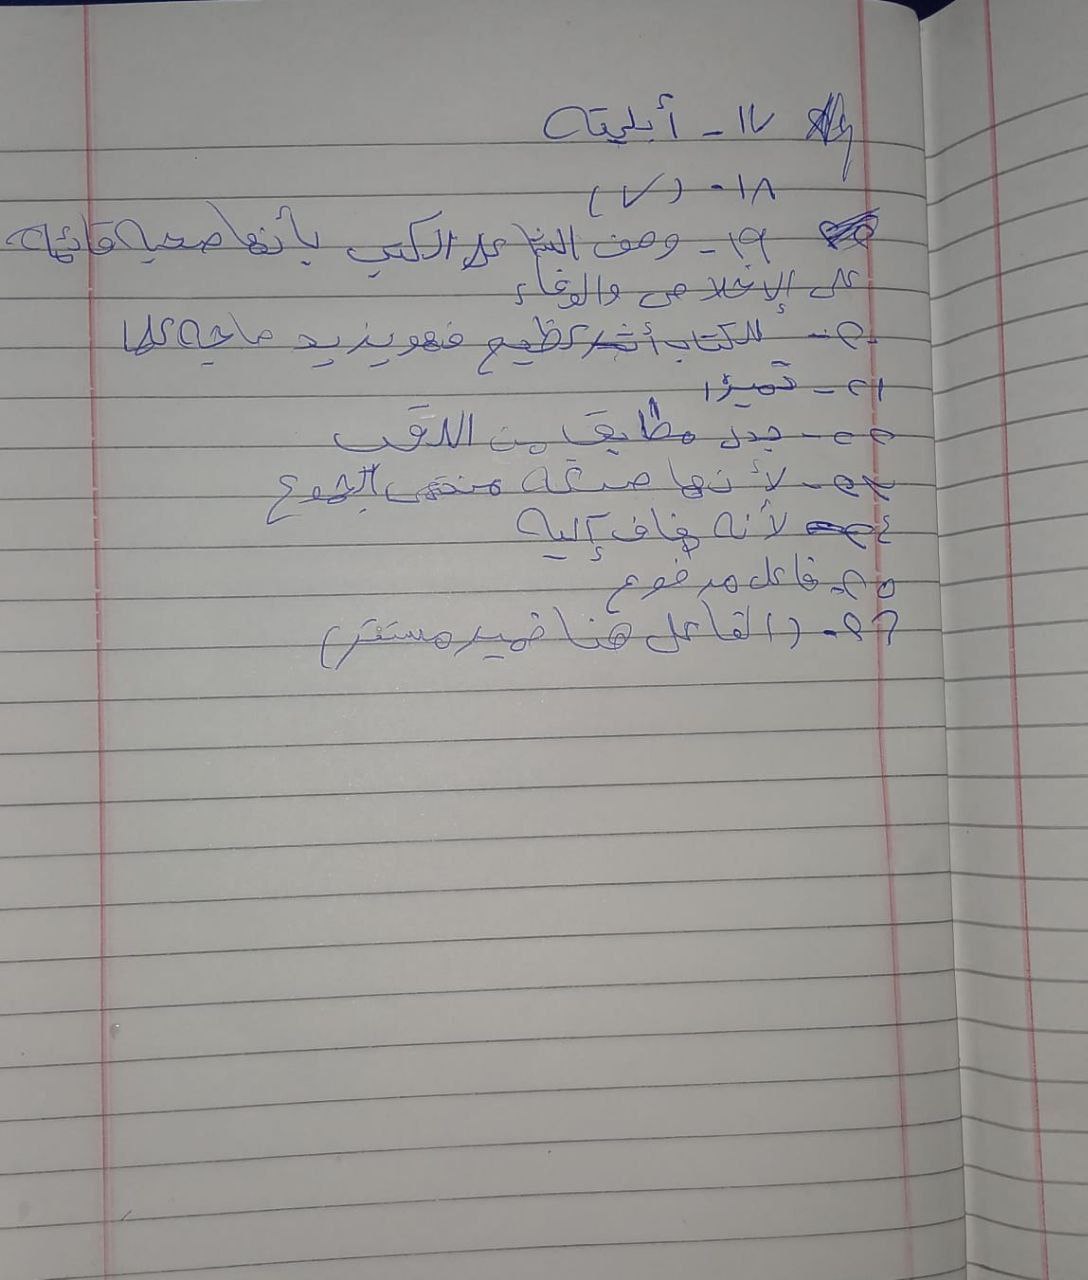 ١٧- أبليته
١٨- (✓)
١٩- وصف الشاعر الكتب بأنها صحبة قائمة
على الإخلاص والوفاء
٢٠- للكتاب أثر عظيم فهو يزيد صاحبه علما
٢١- تمييزا
٢٢- بدل مطابق من اللقب
٢٣- لأنها صيغة منتهى الجموع
٢٤- لأنه مضاف إليه
٢٥- فاعل مرفوع
٢٦- (الفاعل هنا ضمير مستتر)